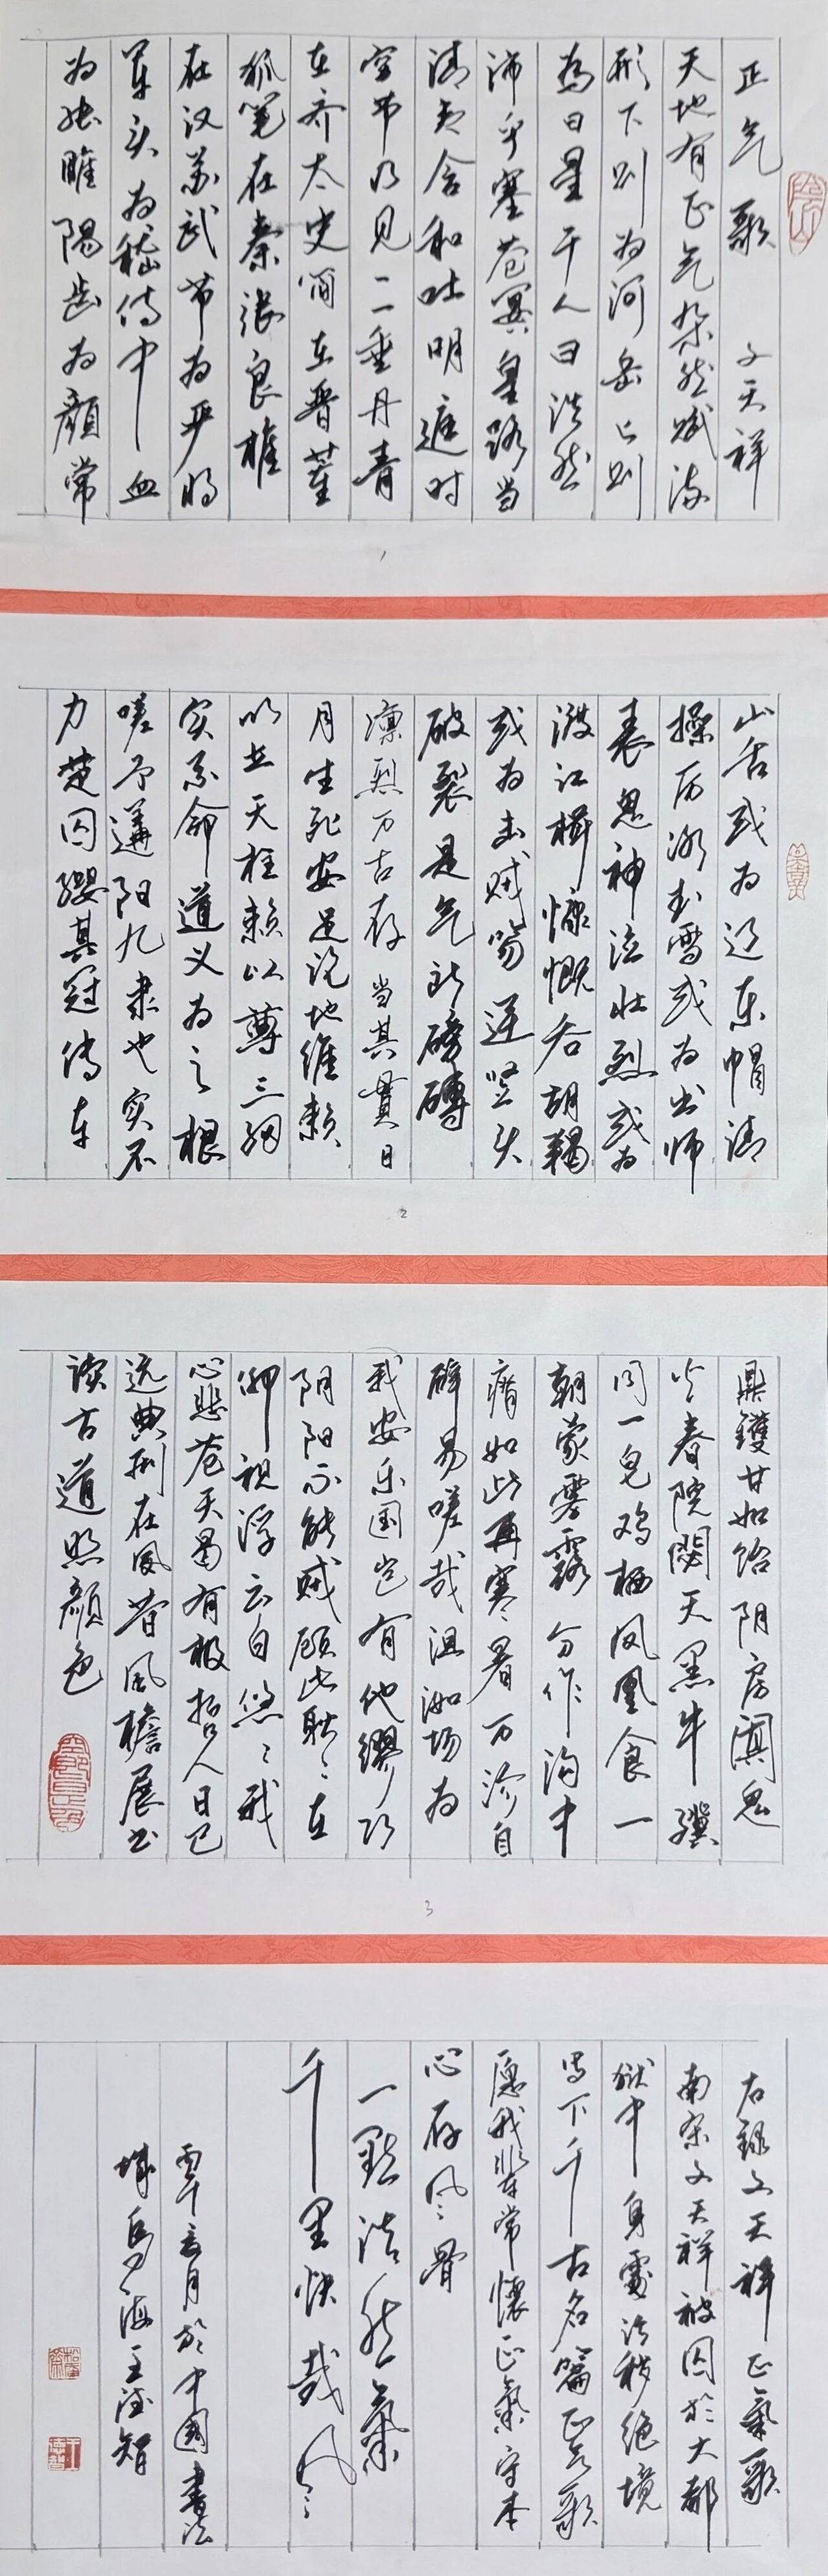 正气歌 文天祥
天地有正气杂然赋流
形下则为河岳上则
为日星于人曰浩然
沛乎塞苍冥皇路当
清夷含和吐明庭时
穷节乃见一一垂丹青
在齐太史简在晋董
狐笔在秦张良椎
在汉苏武节为严将
军头为嵇侍中血
为张睢阳齿为颜常
山舌或为辽东帽清
操厉冰雪或为出师
表鬼神泣壮烈或为
渡江楫慷慨吞胡羯
或为击贼笏逆竖头
破裂是气所磅礴
凛烈万古存当其贯日
月生死安足论地维赖
以立天柱赖以尊三纲
实系命道义为之根
嗟予遘阳九隶也实不
力楚囚缨其冠传车
鼎镬甘如饴阴房阒鬼
火春院閟天黑牛骥
同一皂鸡栖凤凰食一
朝蒙雾露分作沟中
瘠如此再寒暑百沴自
辟易嗟哉沮洳场为
我安乐国岂有他缪巧
阴阳不能贼顾此耿耿在
仰视浮云白悠悠我
心悲苍天曷有极哲人日已
远典刑在夙昔风檐展书
读古道照颜色
右录文天祥正氣歌
南宋文天祥被囚於大都
狱中身處污秽绝境
写下千古名篇正气歌
愿我辈常懷正氣守本
心存风骨
一點浩然氣
千里快哉风
月於中國書法
城烏海王德智
1
2
3